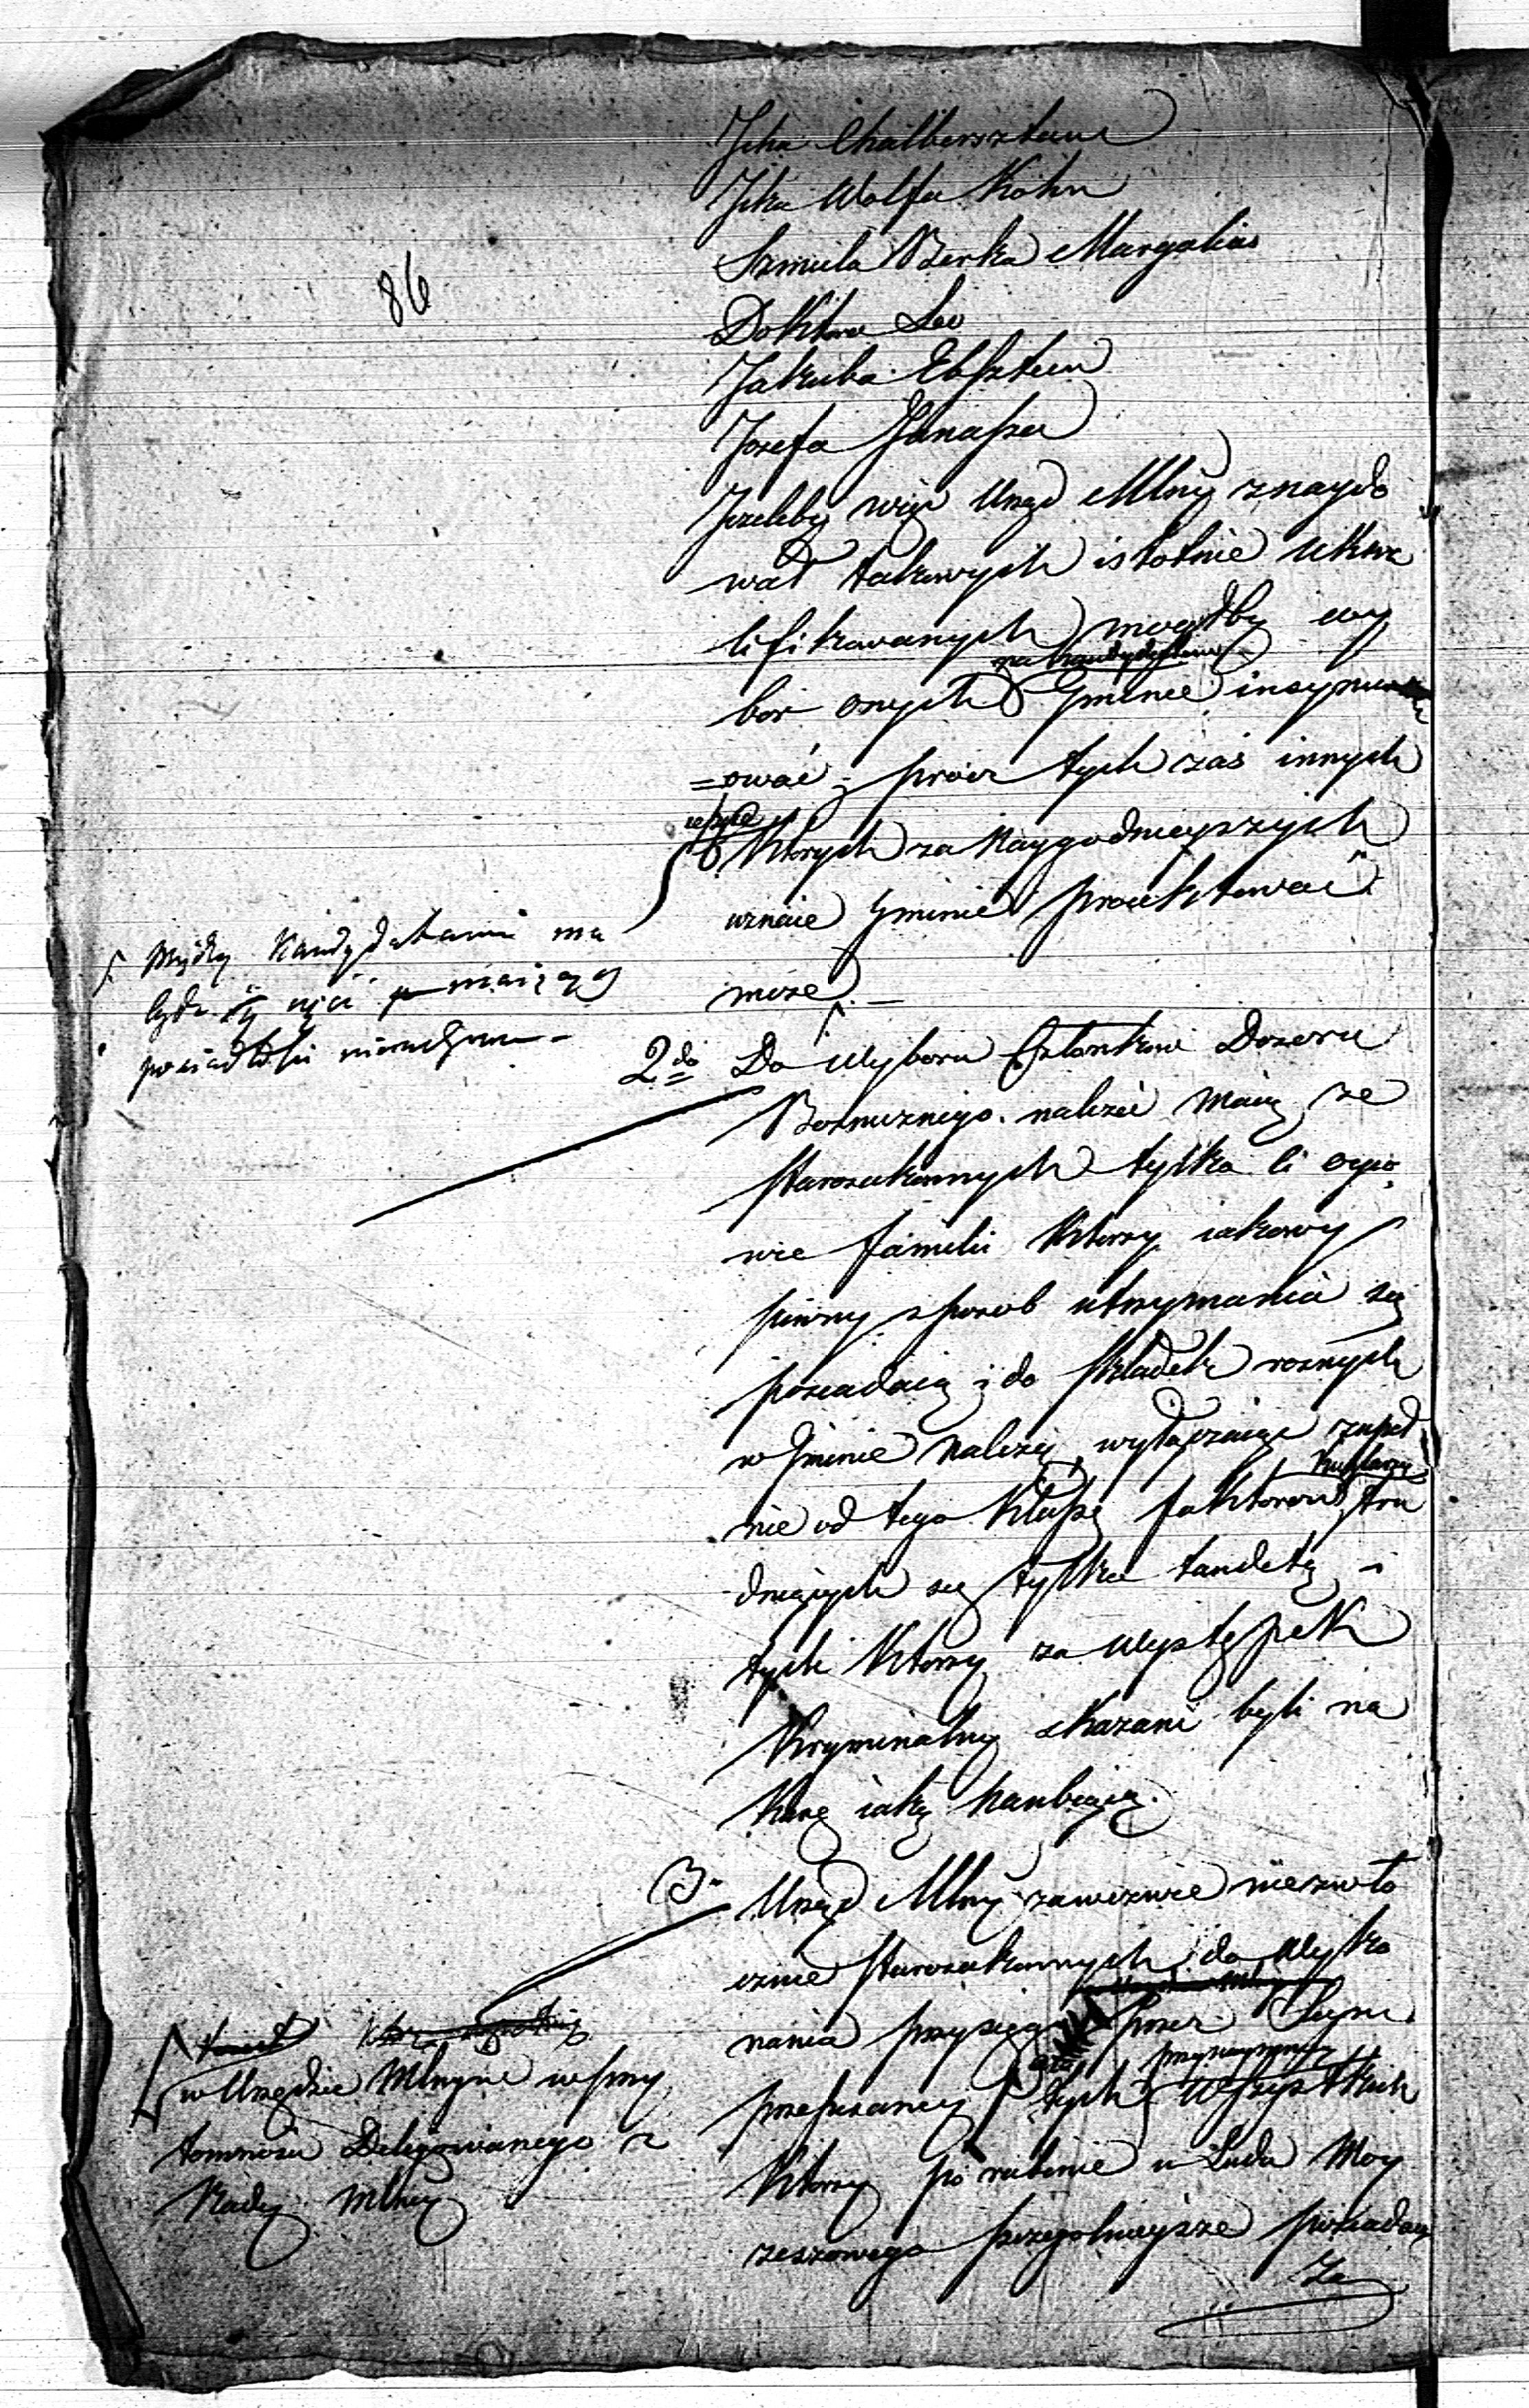 86
Icka Chalbersztama
Icka Wolfa Kohn
Szmula Berka Margolias
Doktora Leo
Jakuba Ebsztein
Jozefa Janasza
Jezeliby więc Urząd Mlny znaydo
wał takowych istotnie ukwa
lifikowanych mogłby wy
na kandydatow
bor onych Gminie insynu
=ować; prócz tych zaś innych
ieszcze
których za naygodnieyszych
uzna Gmina proiektować
może
Między Kandydatami ma
bydź maiący
posiadłość nieruchomą
2do Do Wyboru Członkow Dozoru
Boznicznego należéć maią ze
starozakonnych tylko ci oyco
wie familii którzy iakowy
pewny sposob utrzymania się
posiadaią i do składek roznych
w Gminie należą, wyłączaiąc zupeł
nie od tego klassę faktorow, tru
dniących się tylko tandetą i
tych którzy za występek
kryminalny skazani byli na
karę iaką hanbiącą.
3o Urząd Mlny zawezwie niezwło
cznie starozakonnych do wyko
nania przysięgi przez
przepisaney tych wszystkich
którzy po rabinie u Ludu Moy
zeszowego szczegolnieysze posiadaią
w Urzędzie Mlnym w przy
tomności Delegowanego z
Rady Mlney
Za